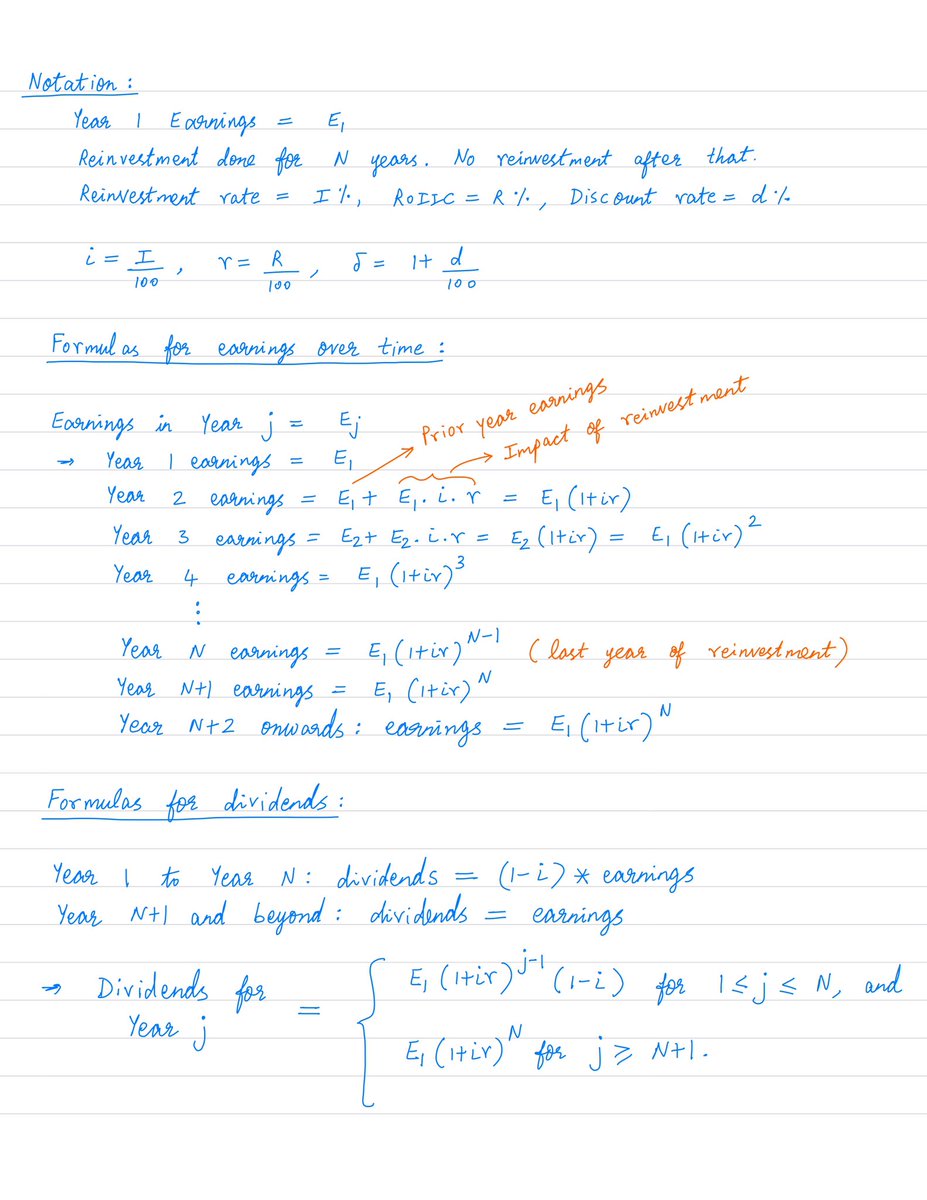 Notation :
Year 1 Earnings = E₁
Reinvestment done for N years. No reinvestment after that.
Reinvestment rate = I %, ROIIC = R %, Discount rate = d %
i = I/100 , r = R/100 , δ = 1 + d/100
Formulas for earnings over time :
Earnings in Year j = Eⱼ
→ Prior year earnings
→ Impact of reinvestment
→ Year 1 earnings = E₁
Year 2 earnings = E₁ + E₁. i. r = E₁ (1+ir)
Year 3 earnings = E₂ + E₂. i. r = E₂ (1+ir) = E₁ (1+ir)²
Year 4 earnings = E₁ (1+ir)³
⋮
Year N earnings = E₁ (1+ir)^N-1 ( last year of reinvestment )
Year N+1 earnings = E₁ (1+ir)^N
Year N+2 onwards : earnings = E₁ (1+ir)^N
Formulas for dividends :
Year 1 to Year N : dividends = (1-i) * earnings
Year N+1 and beyond : dividends = earnings
→ Dividends for Year j = { E₁ (1+ir)^j-1 (1-i) for 1 ≤ j ≤ N, and
E₁ (1+ir)^N for j ≥ N+1.